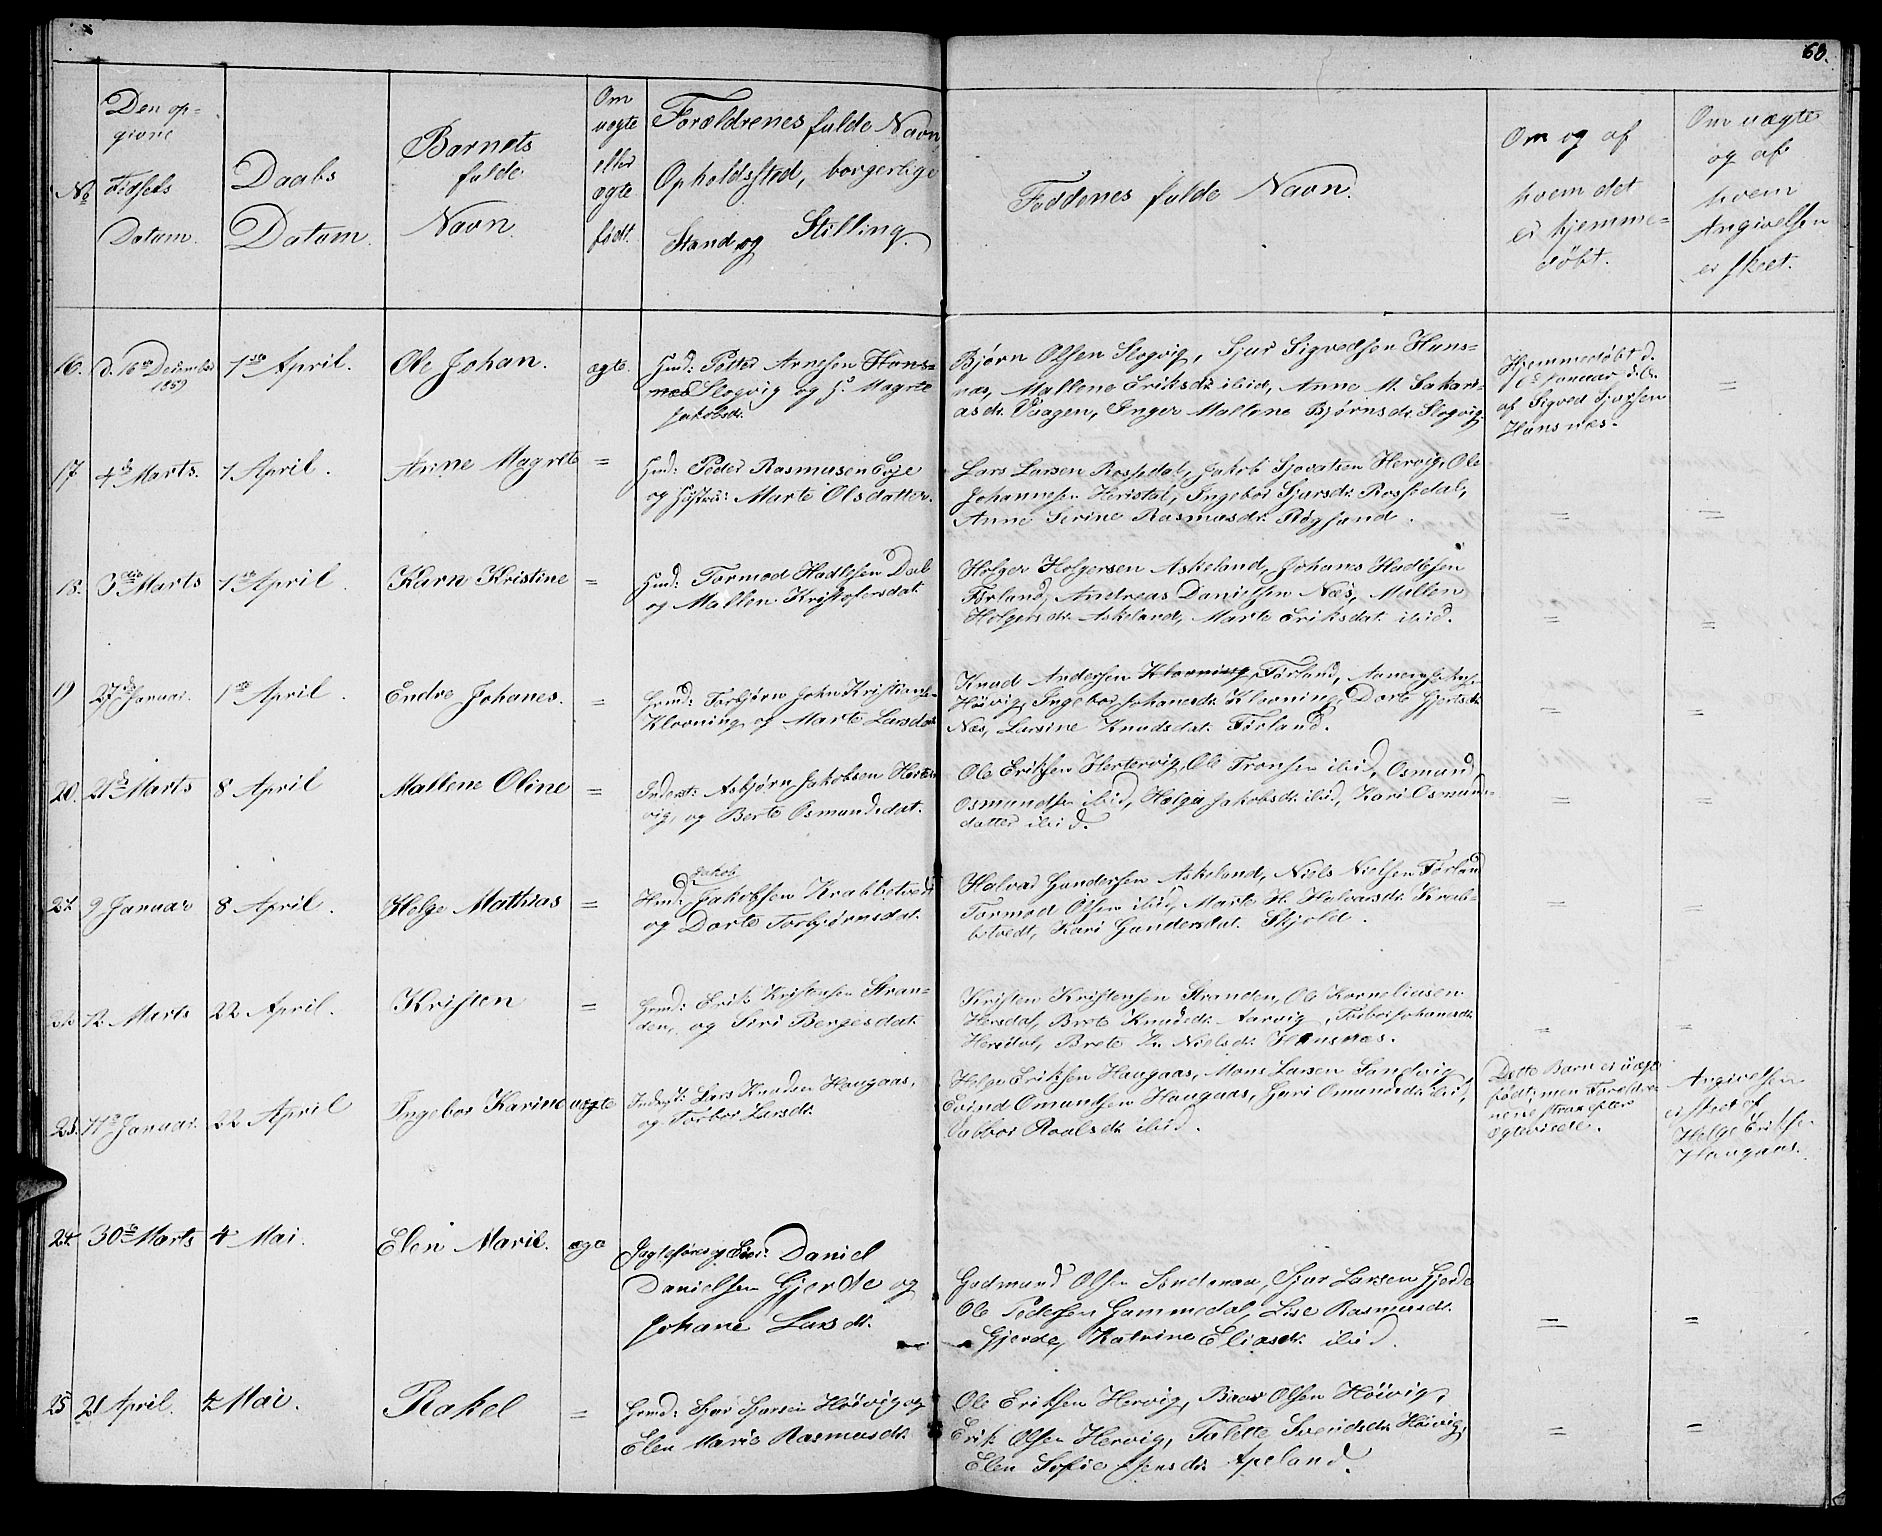 68.
No
Den op-
givne
Fødsels
Datum.
Daabs
Datum.
Barnets
fulde
Navn.
Om
uægte
eller
ægte
født.
Forældrenes fulde Navn,
Opholdssted, borgerlige
Stand og Stilling.
Faddernes fulde Navn.
Om og af
hvem det
er hjemme-
døbt.
Om uægte
og af
hvem
Angivelsen
er skeet.
16. d. 16de December 1859 1ste April. Ole Johan. ægte. Gmd: Peder Arnesen Hans-
næs Slogvig og H: Magrete
Jakobsdr.
Bjørn Olsen Slogvig, Sjur Sigvedsen Hans-
næs, Mallene Eriksdr ibid, Anne M. Sakari-
asdr. Vaagen, Inger Mallene Bjørnsdr. Slogvig.
Hjemmedøbt d.
Januar
af Sigved Sjursen
Hansnæs.
=
17 4de Marts. 1 April. Anne Magrete =
Gmd: Peder Rasmusen Eyje
og Hustru: Marte Olsdatter.
Lars Larsen Rossedal, Jakob Hervig, Ole
Johannesen Herstøl, Ingebor Sjursdr. Rossedal,
Anne Serine Rasmusdr. Røgsand.
= =
18. 3die Marts 1ste April Karn Kristine =
Gmd: Tormod Hadlesen Dal
og Mallen Kristofersdat.
Holger Holgersen Askeland, Johans Hadlesen
Førland, Andreas Danielsen Næs, Malten
Holgersdr. Askeland, Marte Eriksdat. ibid.
= =
19 27de Januar. 1ste April. Endre Johanes. =
Gmd: Torbjørn John Kristians-
Klovning og Marte Larsdatr.
Knud Andersen Klovning, Førland,
Høivig, Ingebor Johanesdr. Klovning, Dorte Gjertsdr.
Næs, Larsine Knudsdat. Førland.
= =
20. 21de Marts 8 April Mallene Oline =
Inderst: Asbjørn Jakobsen Herter-
vig, og Berte Osmundsdat.
Ole Eriksen Hertervig, Ole Tronsen ibid, Osmund
Osmundsen ibid, Helga Jakobsdr. ibid, Kari Osmunds-
datter ibid.
= =
21. 9 Januar 8 April. Helge Mathias =
Jakob
Gmd: Jakobsen Krabbetvedt
og Dorte Torbjørnsdat.
Halvar Gundersen Askeland, Niels Nielsen Førland
Tormod Olsen ibid, Marte H. Halvarsdr. Krab-
betvedt, Kari Gundersdat. Skjold.
= =
22 12 Marts 22 April. Kristen =
Gmd: Erik Kristensen Stran-
den, og Siri Bergesdat.
Kristen Kristensen Stranden, Ole Korneliusen
Hersdal, Brete Knudsdr. Aarvig, Torbor Johanesdr.
Hersdal, Brete K. Nielsdr. Hansnæs.
= =
23. 11te Januar. 22 April Ingebor Karine uægte
Inderst: Lars Knudsen Haugaas,
og Torbor Larsdr.
Helge Eriksen Haugaas, Mons Larsen Sandvig
Eivind Omundsen Haugaas, Guri Omundsdr. ibid,
Vabbor Roalsdr. ibid.
Dette Barn er uægte
født, men Foreldre-
nene strax efter
egteviede.
Angivelsen
er skeet af
Helge Eriksen
Haugaas.
24. 30te Marts 4 Mai. Elen Marie. ægte
Daniel
Danielsen Gjerde og
Johane Larsdr.
Gudmund Olsen Søndenaa, Sjur Larsen Gjerde
Ole Pedersen Gammedal, Lise Rasmusdr.
Gjerde, Katrine Eliasdr. ibid.
= =
25 21 April. 4 Mai. Rakel =
Gmd: Sjur Sjursen Høivig og
Elen Marie Rasmusdr.
Ole Eriksen Hervig, Baar Olsen Høivig,
Erik Olsen Hervig, Talette Svendsdr. Høivig,
Elen Sofie Jensdr. Apeland.
= =